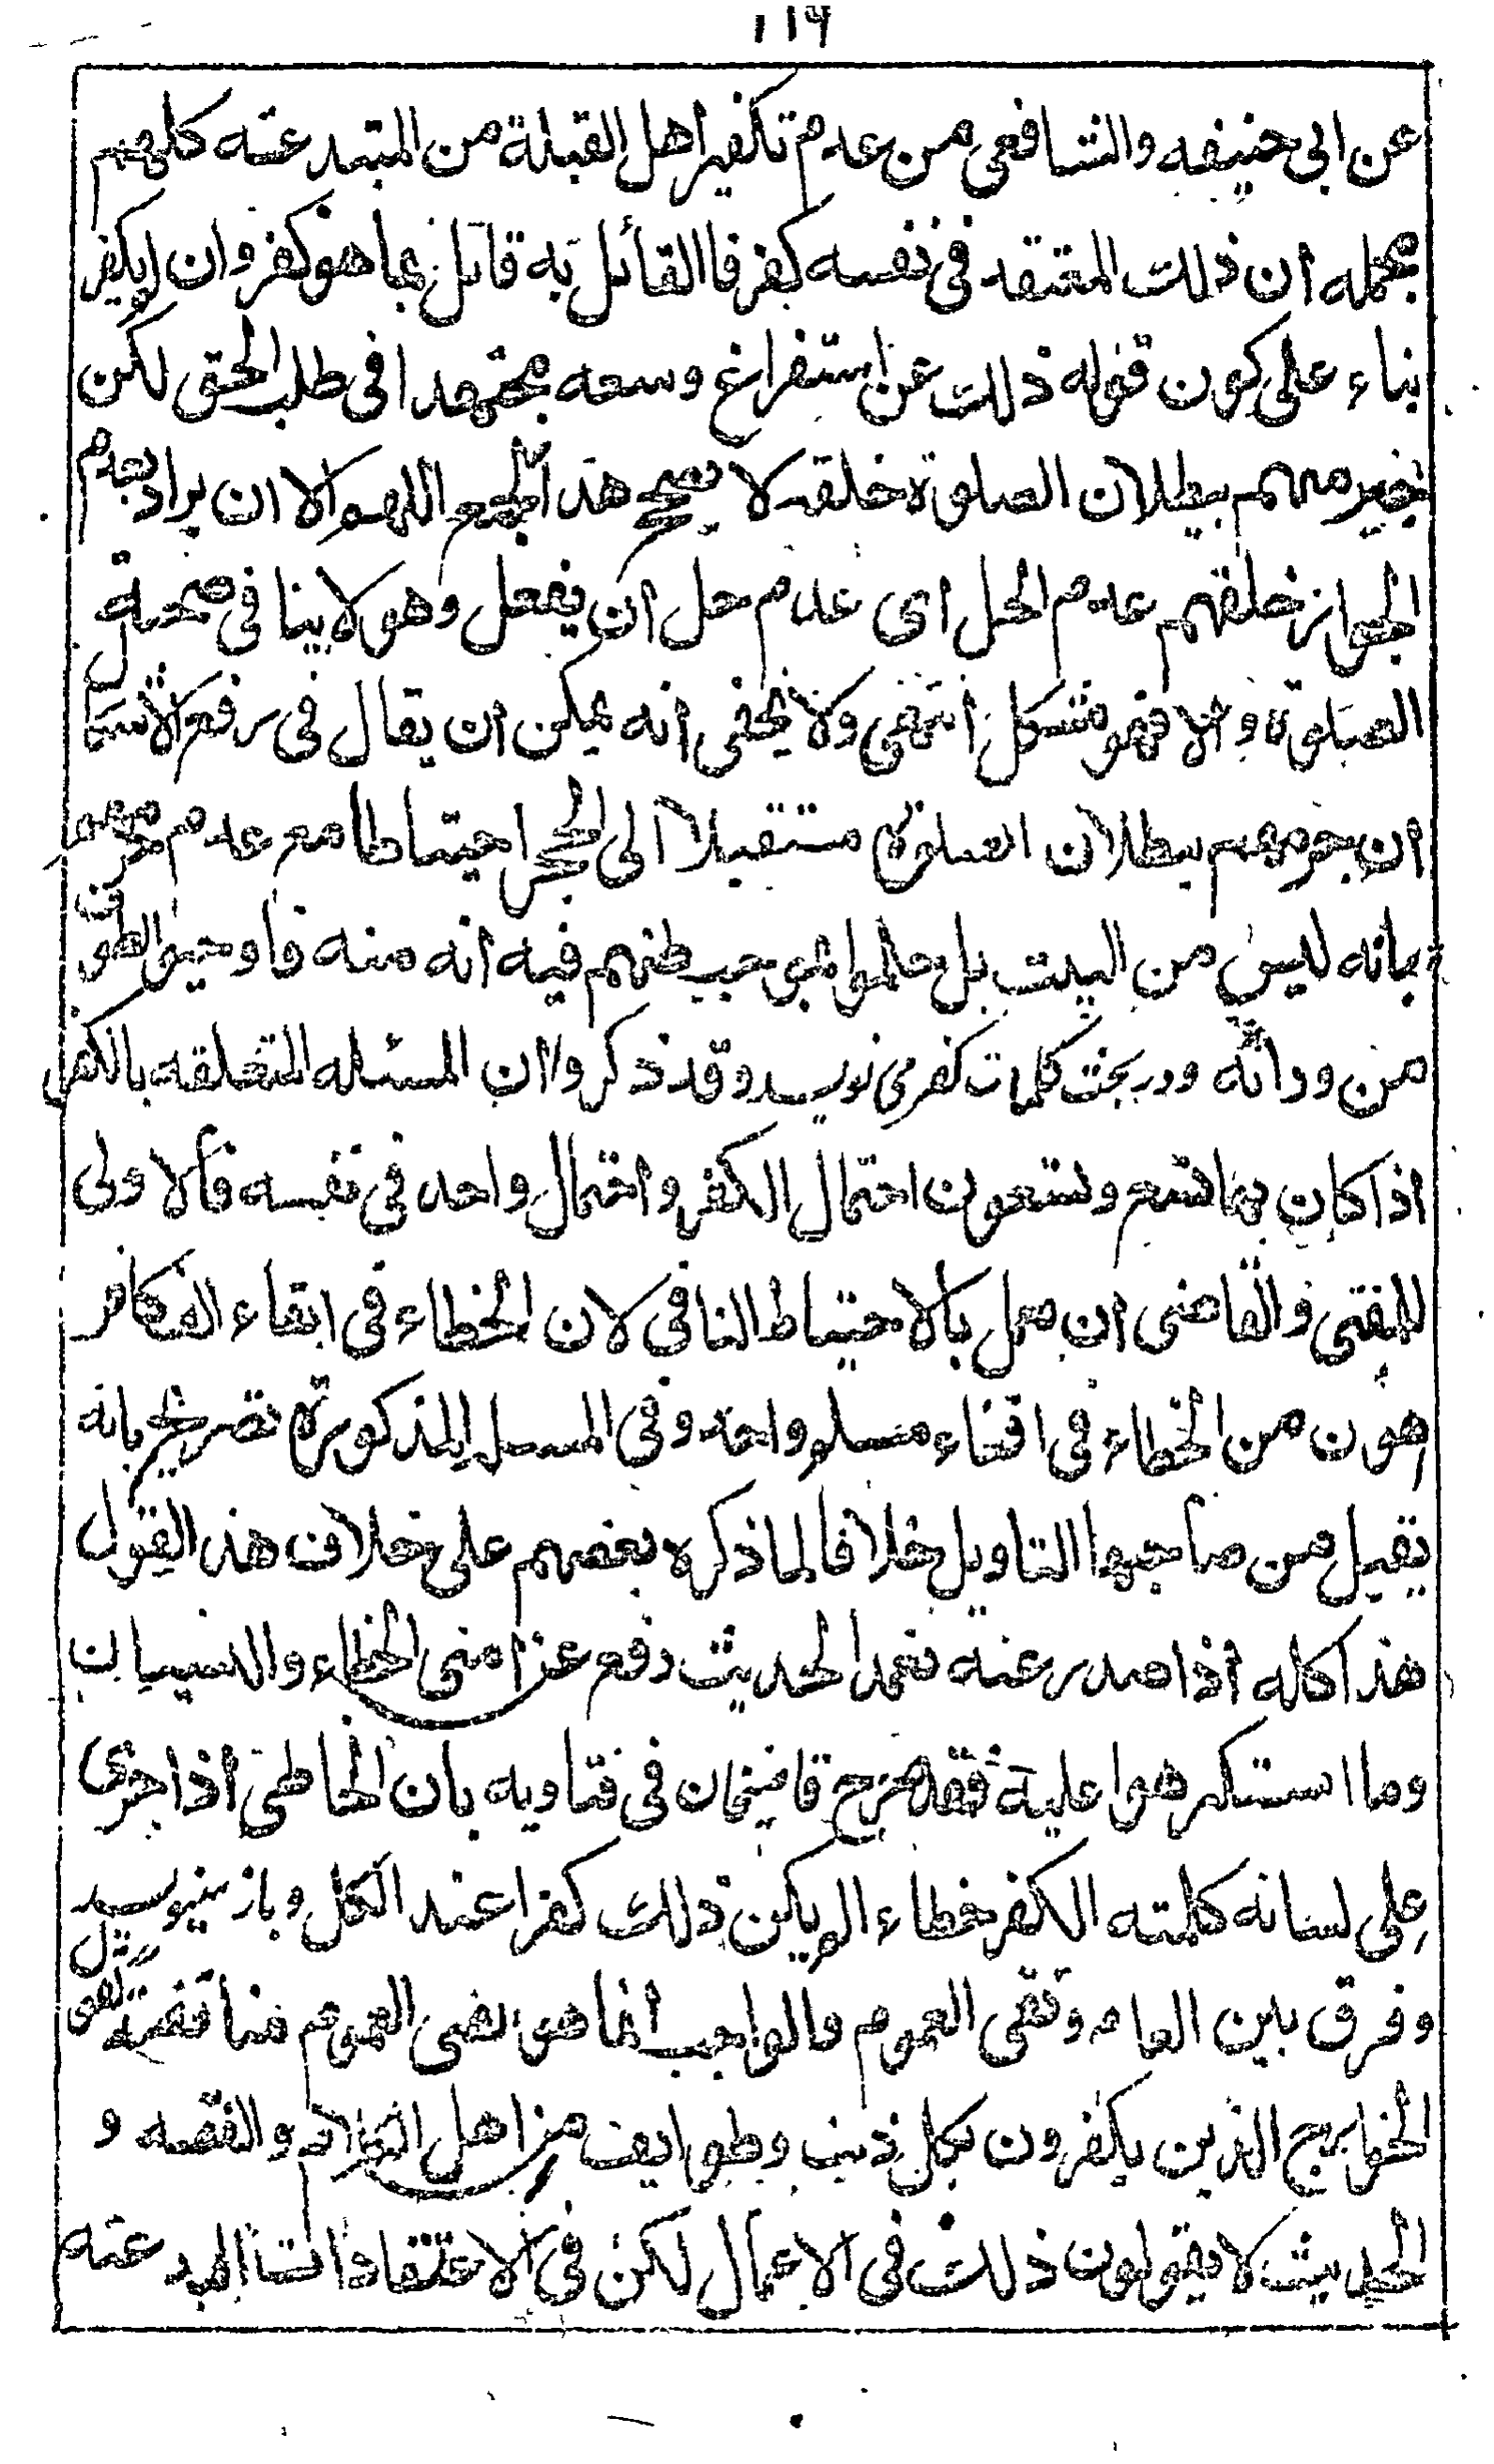 ١١٩
عن ابى حنيفه والشافعى من عدم تكفير اهل القبلة من المبتدعته كلهم
محمله ان ذلك المعتقد فى نفسه كفر فا القائل به قائل بما هو كفر وان لم يكفر
بناء على كون قوله ذلك عن استفراغ وسعه مجتهدا فى طلب الحق لكن
بطلان الصلوة خلفه لا يصحح هذا الجمع اللهم الا ان يراد بعدم
الجواز خلفهم عدم الحل اى عدم حل ان يفعل وهو لا ينافى صحة
الصلوة والا فهو مشكل انتهى ولا يخفى انه يمكن ان يقال فى رفع الاشكال
ان جزمهم ببطلان الصلوة مستقبلا الى الحجر احتياطا مع عدم جزمهم
بانه ليس من البيت بل حكموا بموجب ظنهم فيه انه منه فاوجبوا الطواف
من ورائه ودر بحث كلمات كفر مى نويسد وقد ذكروا ان المسئله المتعلقه بالكفر
اذا كان بها تسع وتسعون احتمال الكفر واحتمال واحد فى نفسه فالاولى
للمفتى والقاضى ان يعمل بالاحتياط النافى لان الخطاء فى ابقاء الف كافر
اهون من الخطاء فى افناء مسلم واحد وفى المسله المذكورة تصريح بانه
يقبل من صاحبها التاويل خلافا لما ذكره بعضهم على خلاف هذا القول
هذا كله اذا صدر عنه تعمدا لحديث رفع عن امتى الخطاء والنسيان
وما استكرهوا عليه فقد صرح قاضيخان فى فتاويه بان الخاطى اذا جرى
على لسانه كلمته الكفر خطاء لم يكن ذلك كفرا عند الكل وباز مينويسد
وفرق بين العام ونفى العموم والواجب انما هو نفى العموم مناقضة لقول
الخوارج الذين يكفرون بكل ذنب وطوايف من اهل الكلام والفقه و
الحديث لا يقولون ذلك فى الاعمال لكن فى الاعتقادات البدعته